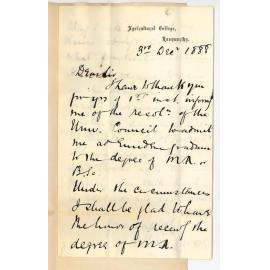 Agricultural College,
3rd Decr 1888
Dear Sir
I have to thank you
for yrs of 1st inst. inform
me of the resoln of the
Univ. Council to admit
me ad Eundem gradum
to the degree of M.A. or
B.Sc.
Under the circumstances
I shall be glad to have
the honor of receivg the
degree of M.A.